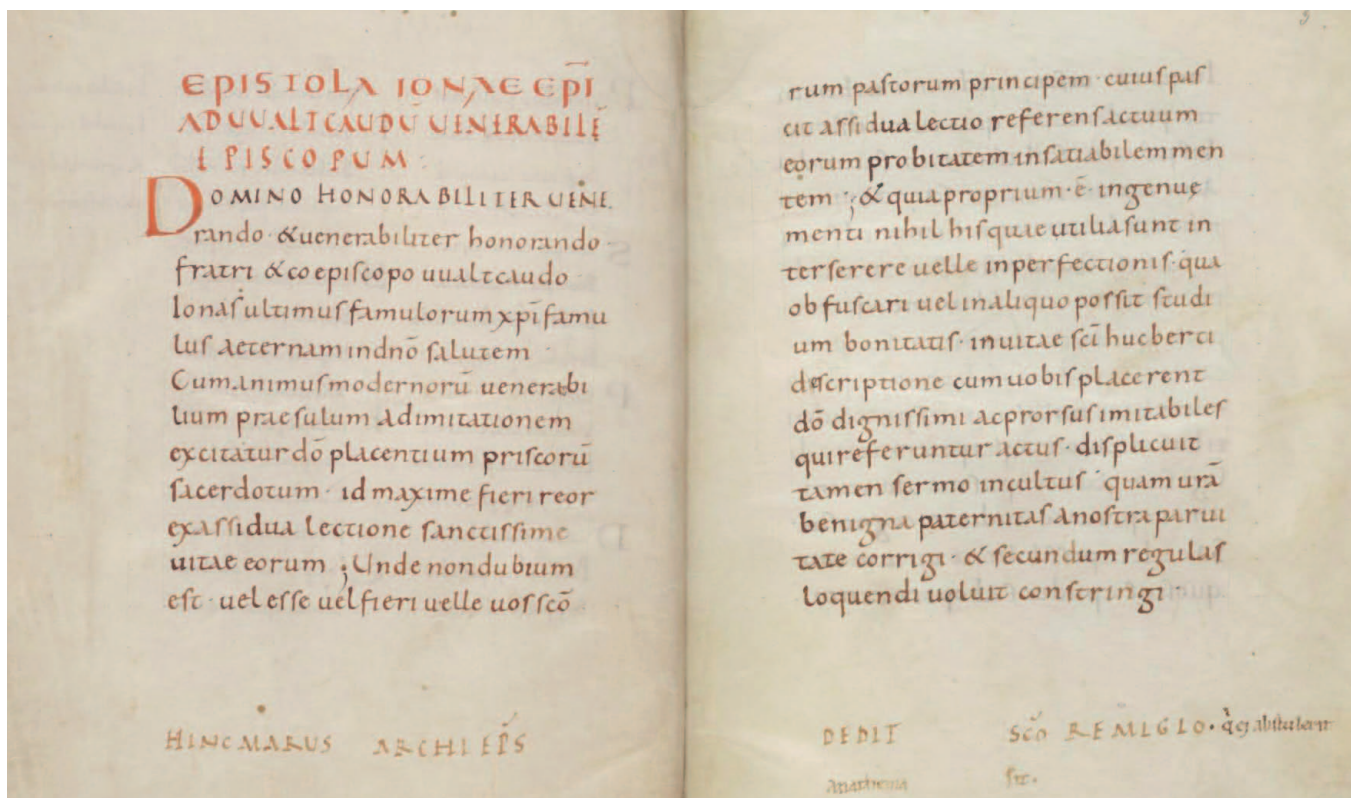 EPISTOLA IONAE EPĪ
AD UUALTCAUDŪ UENERABILĒ
EPISCOPUM
DOMINO HONORABILITER UENE
rando · &uenerabiliter honorando ·
fratri & coepiscopo uualtcaudo
Ionas ultimus famulorum xpī famu
lus aeternam in dnō salutem
Cum animus modernorū uenerabi
lium praesulum ad imitationem
excitatur dō placentium priscorū
sacerdotum · id maxime fieri reor
ex assidua lectione sanctissime
uitae eorum ; Unde non dubium
est · uel esse uel fieri uelle uos scō
HINCMARUS ARCHIEPS
rum pastorum principem · cuius pas
cit assidua lectio referens actuum
eorum probitatem insatiabilem men
tem ; & quia proprium · ē · ingenuę
menti nihil his quae utilia sunt in
terserere uelle inperfectionis · qua
obfuscari uel in aliquo possit studi
um bonitatis · in uitae scī hucberti
descriptione cum uobis placerent
dō dignissimi ac prorsus imitabiles
qui referuntur actus · displicuit
tamen sermo incultus quam urā
benigna paternitas a nostra parui
tate corrigi · & secundum regulas
loquendi uoluit constringi
DEDIT SCŌ REMIGIO · abstulerit
Anathema sit.